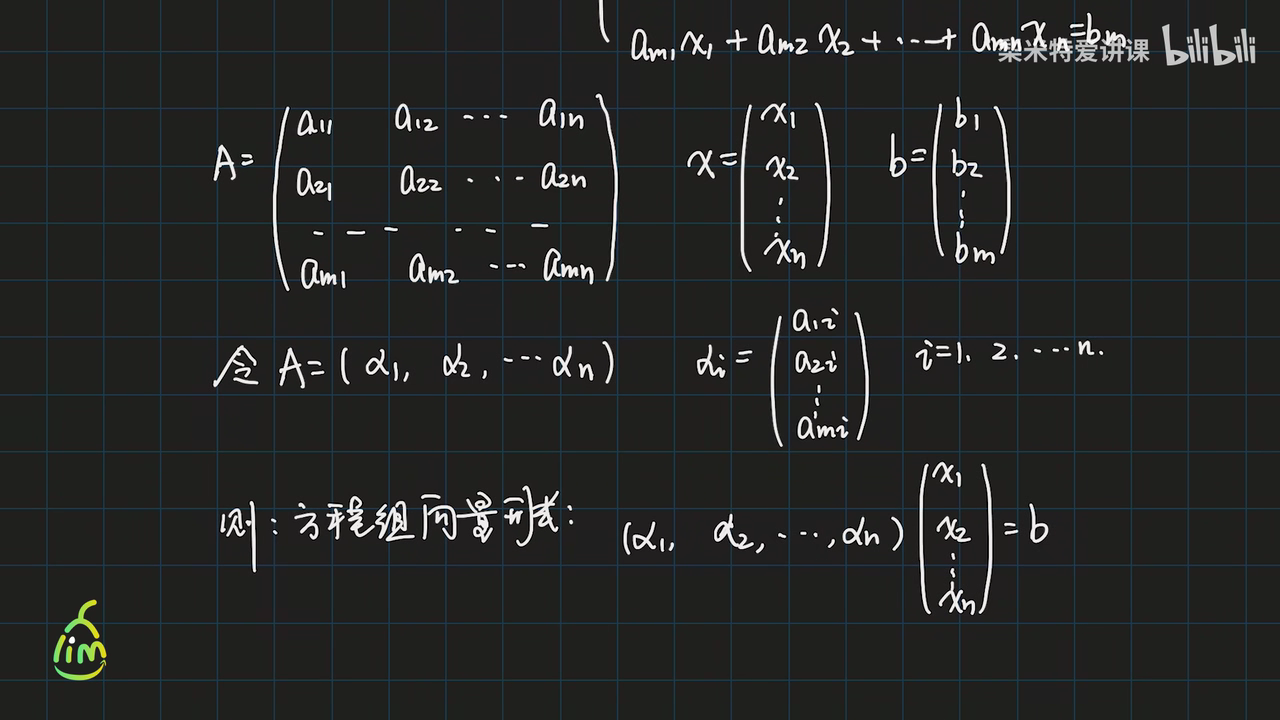 aₘ₁x₁ + aₘ₂x₂ + ⋯ + aₘₙxₙ = bₘ
柴米特爱讲课 bilibili
A= ( a₁₁ a₁₂ ⋯ a₁ₙ x= ( x₁ b= ( b₁
a₂₁ a₂₂ ⋯ a₂ₙ x₂ b₂
- - - - - - ⋮ ⋮
aₘ₁ aₘ₂ ⋯ aₘₙ ) xₙ ) bₘ )
令 A=(α₁, α₂, ⋯ αₙ) αᵢ= ( a₁ᵢ a₂ᵢ ⋮ aₘᵢ ) i=1. 2. ⋯n.
则:方程组向量形式: (α₁, α₂, ⋯, αₙ) ( x₁ x₂ ⋮ xₙ ) = b
lim